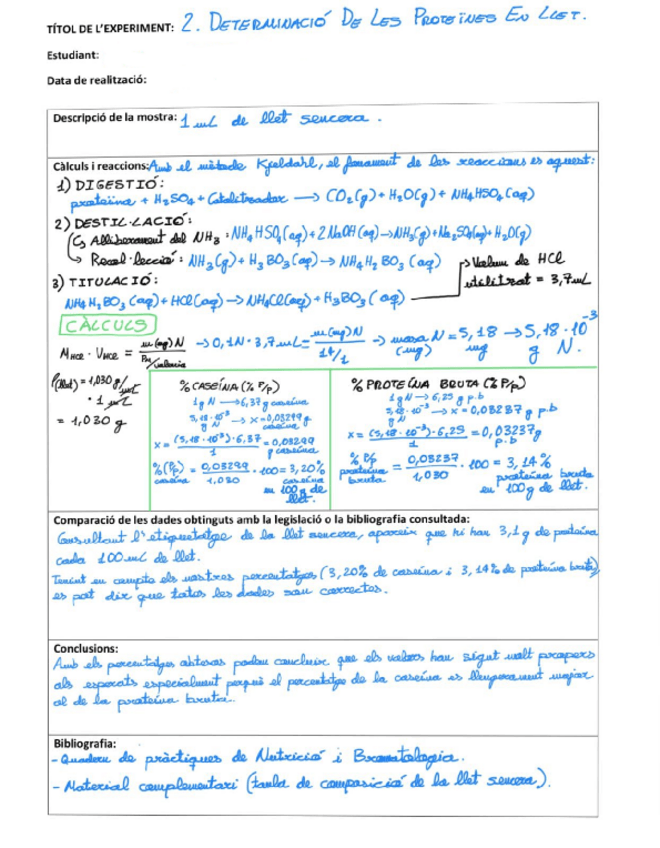 TÍTOL DE L'EXPERIMENT: 2. DETERMINACIÓ DE LES PROTEÏNES EN LLET.
Estudiant:
Data de realització:
Descripció de la mostra: 1 mL de llet sencera.
Càlculs i reaccions: Amb el mètode Kjeldahl, el fonament de les reaccions es aquest:
1) DIGESTIÓ:
proteïna + H2SO4 + Catalitzador → CO2(g) + H2O(g) + NH4HSO4(aq)
2) DESTIL·LACIÓ:
Alliberament del NH3: NH4HSO4(aq) + 2NaOH(aq) → NH3(g) + Na2SO4(aq) + H2O(g)
Recol·lecció: NH3(g) + H3BO3(aq) → NH4H2BO3(aq)
Volum de HCl
utilitzat = 3,7mL
3) TITULACIÓ:
NH4H2BO3(aq) + HCl(aq) → NH4Cl(aq) + H3BO3(aq)
CÀLCULS
MHCl · VHCl = m(mg)N / Pm/valencia → 0,1N · 3,7mL = m(mg)N / 14/1 → massa N = 5,18 mg → 5,18·10⁻³ g N.
(mg)
ρ(llet) = 1,030 g/mL
· 1 mL
= 1,030 g
% CASEÏNA (% P/p)
1g N → 6,37g caseïna
5,18·10⁻³ g N → x = 0,03299g caseïna
x = (5,18·10⁻³)·6,37 / 1 = 0,03299 g caseïna
% (P/p) caseïna = 0,03299 / 1,030 · 100 = 3,20% caseïna en 100g de llet.
% PROTEÏNA BRUTA (% P/p)
1g N → 6,25g p.b
5,18·10⁻³ g N → x = 0,03237g p.b
x = (5,18·10⁻³)·6,25 / 1 = 0,03237g p.b
% P/p proteïna bruta = 0,03237 / 1,030 · 100 = 3,14% proteïna bruta en 100g de llet.
Comparació de les dades obtinguts amb la legislació o la bibliografia consultada:
Consultant l'etiquetatge de la llet sencera, apareix que hi han 3,1g de proteïna
cada 100mL de llet.
Tenint en compte els nostres percentatges (3,20% de caseïna i 3,14% de proteïna bruta)
es pot dir que totes les dades son correctes.
Conclusions:
Amb els percentatges obtesos podem concluir que els valors han sigut molt propers
als esperats especialment perquè el percentatge de la caseïna es lleugerament major
al de la proteïna bruta.
Bibliografia:
- Quadern de pràctiques de Nutrició i Bromatologia.
- Material complementari (taula de composició de la llet sencera).